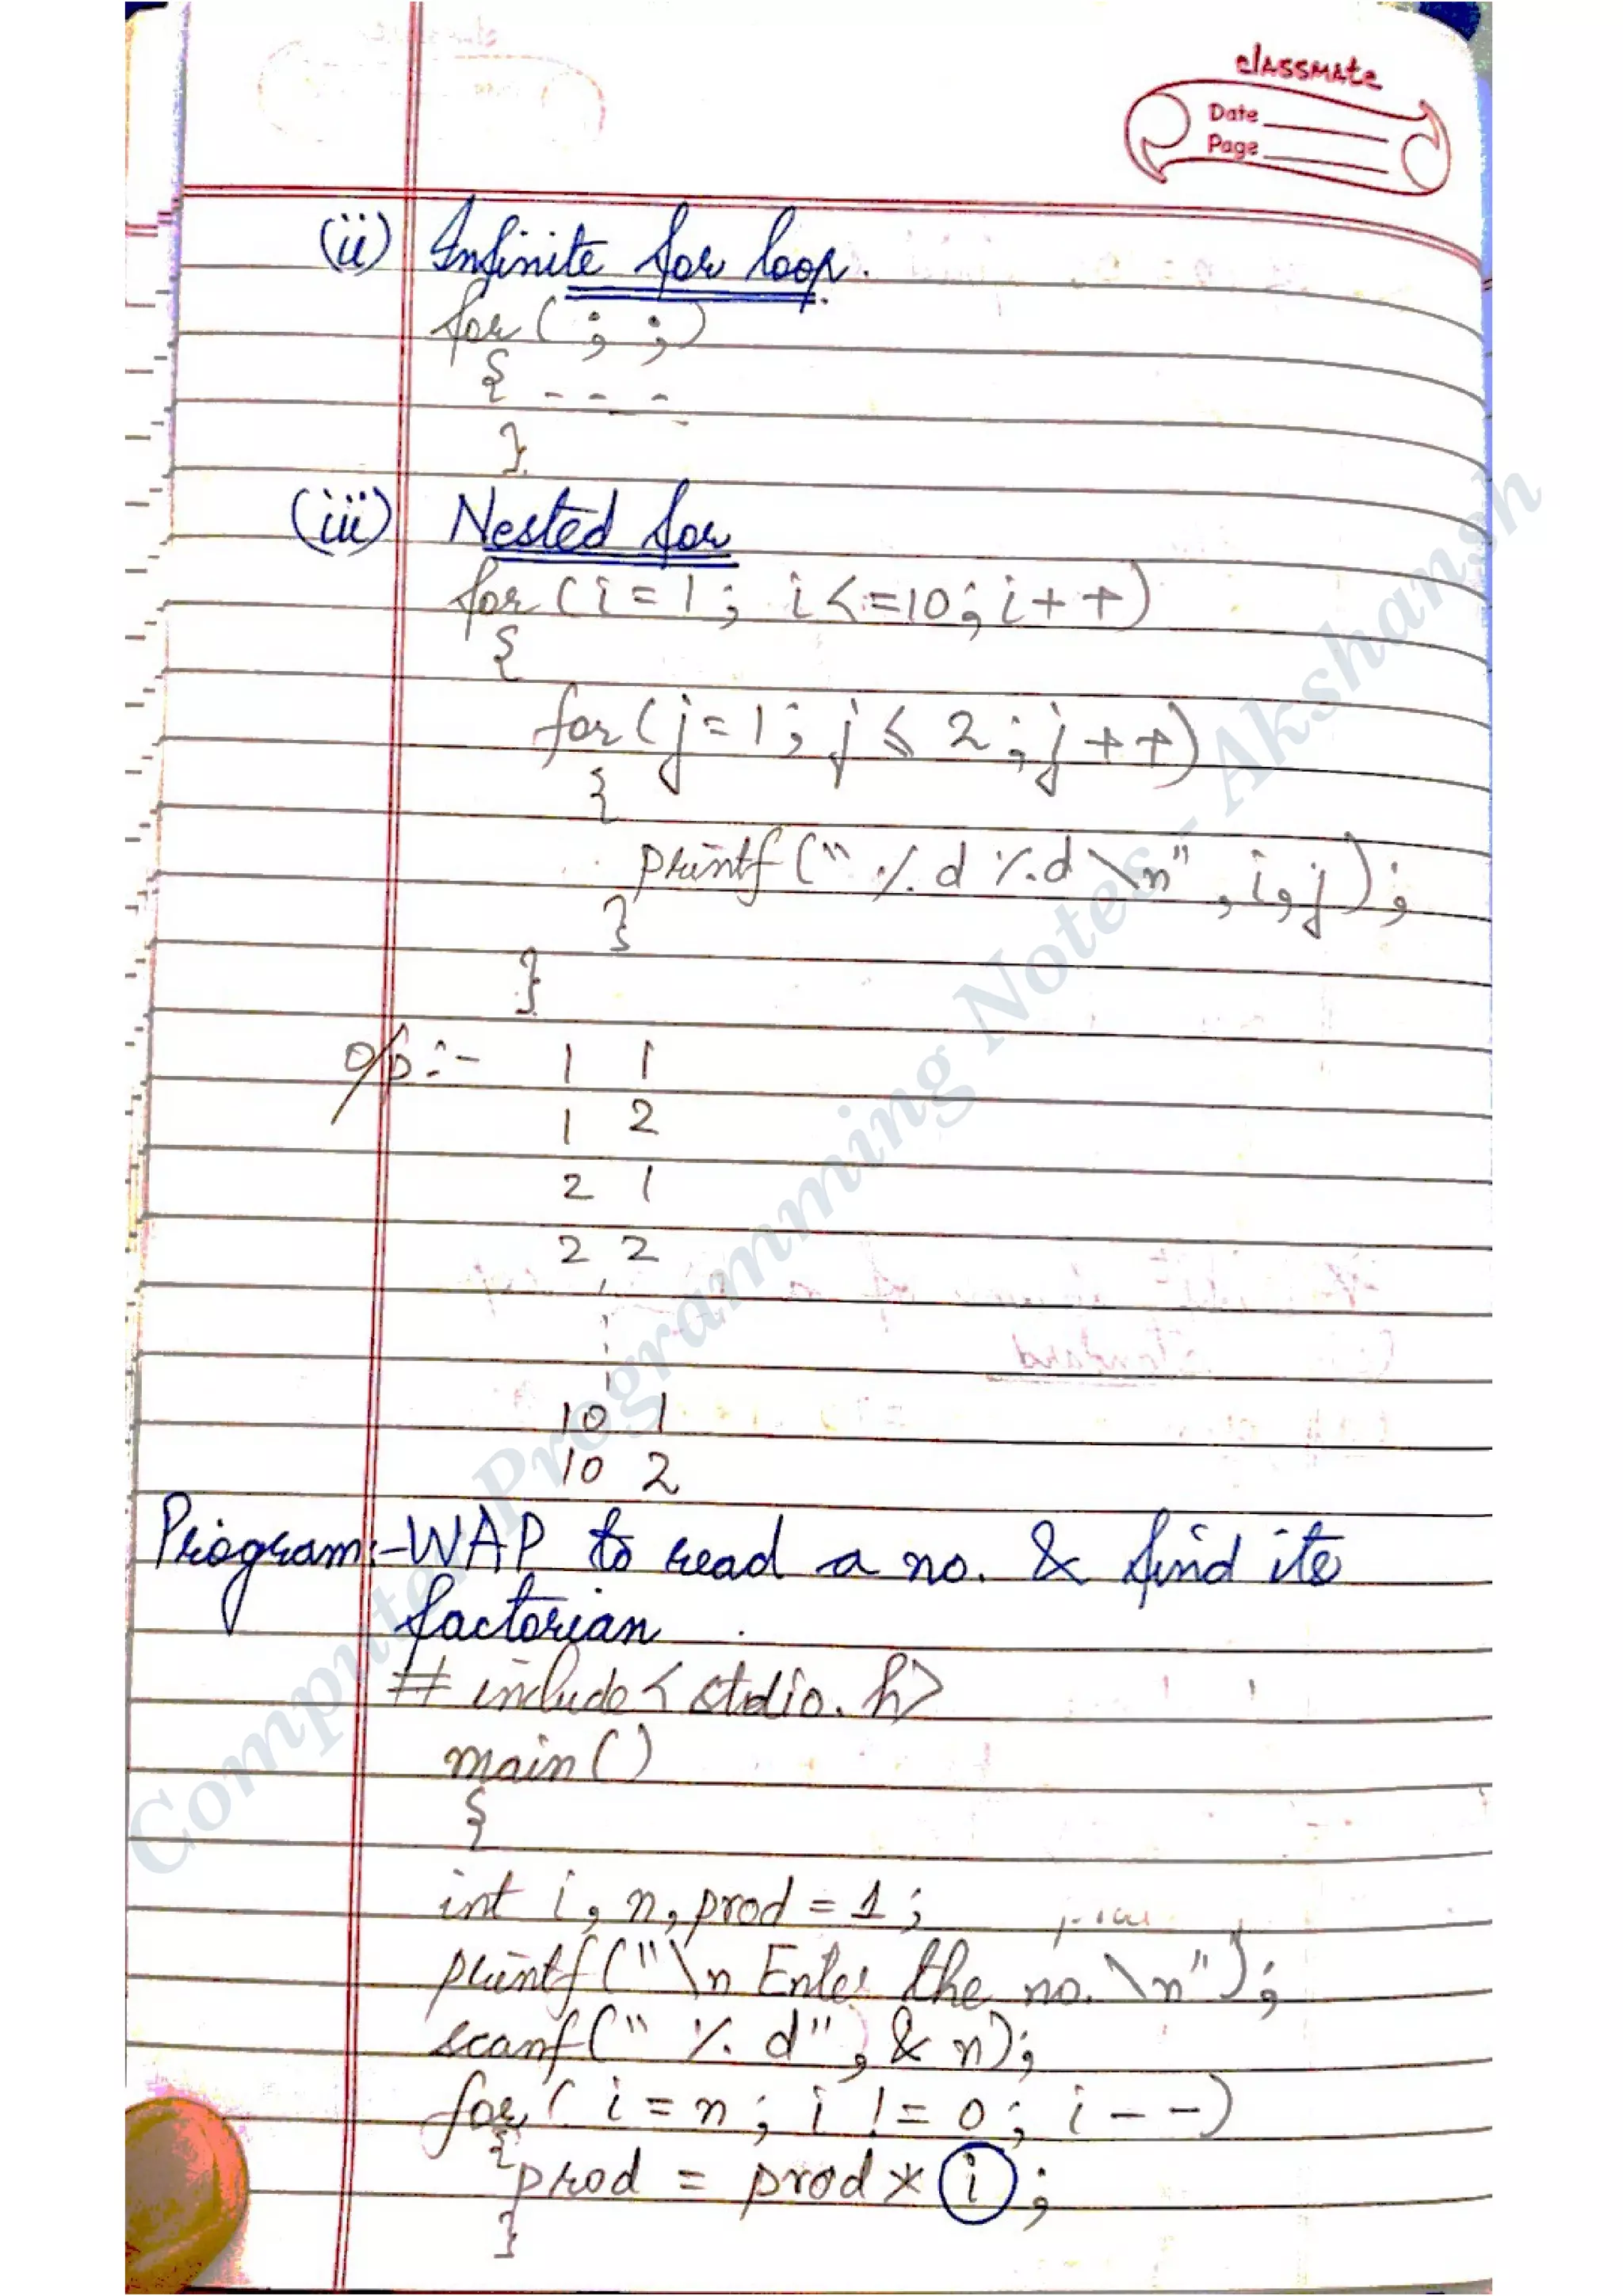 classmate
Date
Page
(ii) Infinite for loop.
for ( ; ; )
{ - - - -
}
(iii) Nested for
for (i = 1 ; i <= 10 ; i + +)
{
for (j = 1 ; j ≤ 2 ; j + +)
{
printf (" % d % d \n" , i , j ) ;
}
}
o/p :- 1 1
1 2
2 1
2 2
10 1
10 2
Program :- WAP to read a no. & find its
factorian
# include < stdio. h>
main ( )
{
int i , n , prod = 1 ;
printf ("\n Enter the no. \n" ) ;
scanf (" % d" , & n) ;
for ( i = n ; i ! = 0 ; i - - )
{
prod = prod * i ;
}
Computer Programming Notes - Akshansh